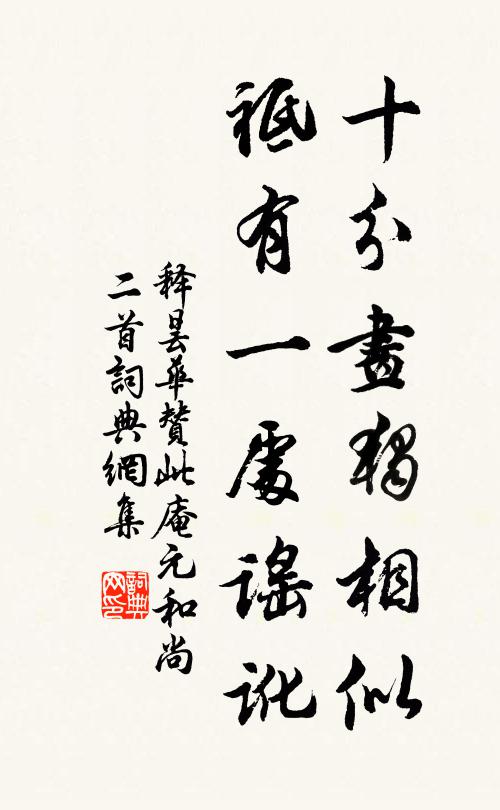 十分畫獨相似
祇有一處謠訛
釋曇華贊此庵元和尚
二首詞典網集
詞典
网印